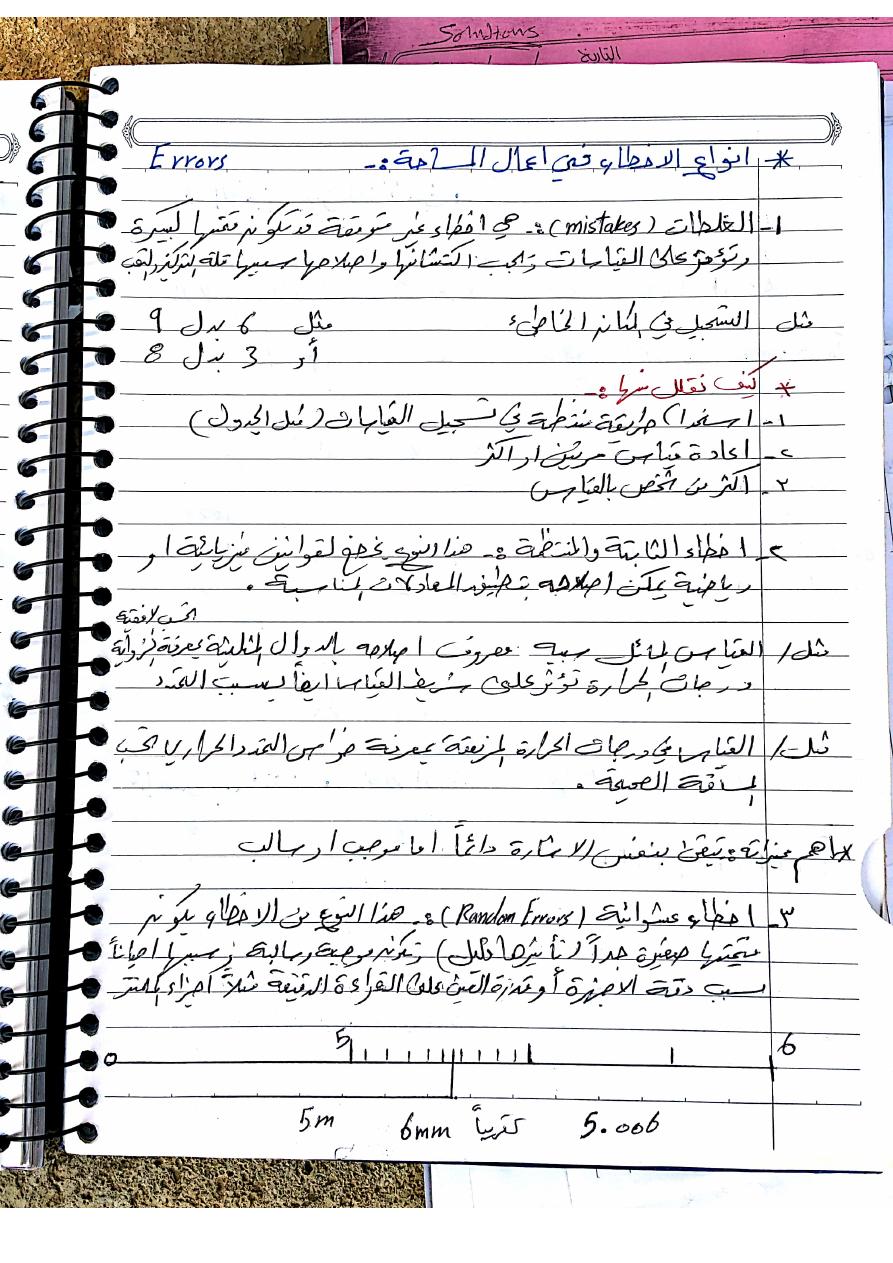 Solutions
التاريخ
* انواع الاخطاء في اعمال المساحة :- Errors
1- الغلطات (mistakes) :- هي اخطاء غير متوقعة قد تكون قيمتها كبيرة
وتؤثر على القياسات ويجب اكتشافها واصلاحها سببها قلة التركيز والتعب
مثل التسجيل في المكان الخاطئ مثل 6 بدل 9
أو 3 بدل 8
* كيف نقلل منها :-
١- استخدام طريقة منتظمة في تسجيل القياسات (مثل الجدول)
٢- اعادة قياس مرتين او اكثر
٣- اكثر من شخص بالقياس
٢- اخطاء الثابتة والمنتظمة :- هذا النوع يخضع لقوانين فيزيائية او
رياضية يمكن اصلاحه بتطبيق المعادلات المناسبة .
مثل/ القياس المائل سببه معروف اصلاحه بالدوال المثلثية بمعرفة الزاوية
درجات الحرارة تؤثر على شريط القياس ايضاً بسبب التمدد
مثل/ القياس في درجات الحرارة المرتفعة بمعرفة خواص التمدد الحراري نحسب
المسافة الصحيحة .
* اهم ميزاته : تبقى بنفس الاشارة دائماً اما موجب او سالب
٣- اخطاء عشوائية (Random Errors) :- هذا النوع من الاخطاء يكون
قيمتها صغيرة جداً (تأثيرها قليل) وتكون موجبة وسالبة وسببها احياناً
بسبب دقة الاجهزة أو قدرة العين على القراءة الدقيقة مثلاً اجزاء الملمتر
0 5 6
5m 6mm تقريباً 5.006